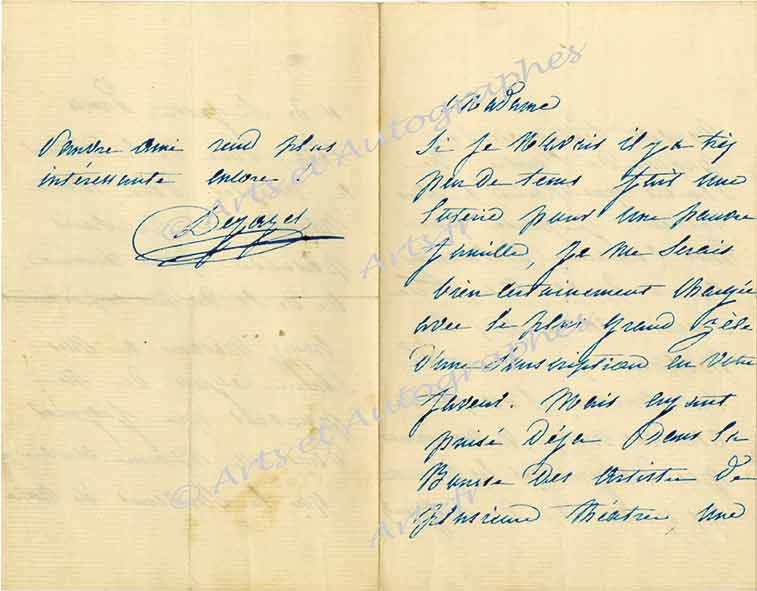 Madame
Si je n'avais il y a très
peu de tems fait une
loterie pour une pauvre
famille, je me serais
bien certainement chargée
avec le plus grand zèle
d'une souscription en votre
faveur. Mais ayant
puisé déja dans la
Bourse des artistes de
plusieurs théatres, une
pauvre amie rend plus
intéressante encore!
Dejazet
© Arts et Autographes
Arts.fr
© Arts et Autographes
Arts.fr